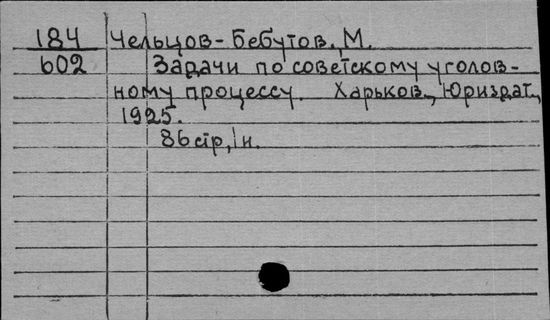 184 Чельцов-Бебутов, М.
602 Задачи по советскому уголов-
ному процессу. Харьков, Юриздат,
1925.
86 стр, 1н.